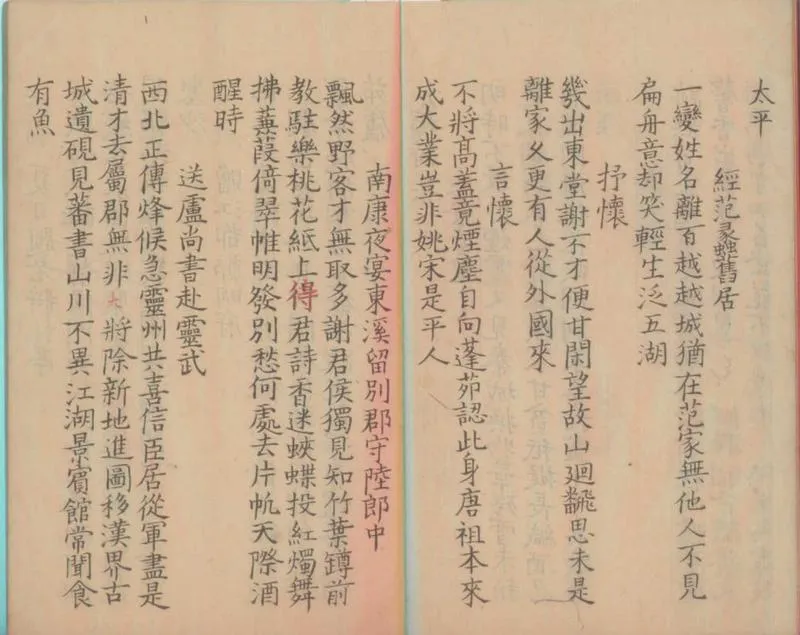 太平
經范蠡舊居
一變姓名離百越越城猶在范家無他人不見
扁舟意却笑輕生泛五湖
抒懷
幾出東堂謝不才便甘閑望故山廻翻思未是
離家久更有人從外國來
言懷
不將高蓋竟煙塵自向蓬茆認此身唐祖本來
成大業豈非姚宋是平人
南康夜宴東溪留別郡守陸郎中
飄然野客才無取多謝君侯獨見知竹葉罇前
教駐樂桃花紙上得君詩香迷蛺蝶投紅燭舞
拂蒹葭倚翠帷明發別愁何處去片帆天際酒
醒時
送盧尚書赴靈武
西北正傳烽候急靈州共喜信臣居從軍盡是
清才去屬郡無非大將除新地進圖移漢界古
城遺硯見蕃書山川不異江湖景賓館常聞食
有魚